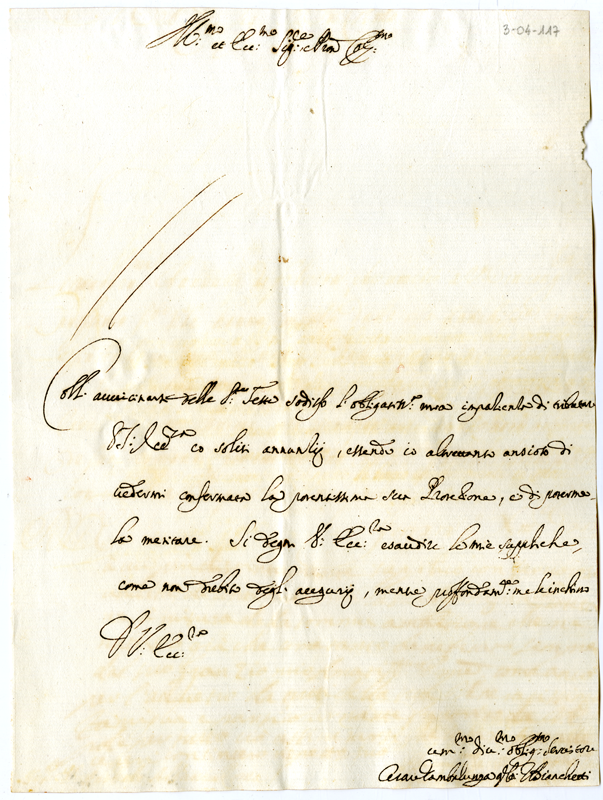 3-04-117
Ill:mo et Ecc:mo Sig:re Pron Col:mo
Coll' avvicinarsi delle S:te Feste sodisfo l'obligatt:ne mia impatiente di tributar
V:S:Ecc:za co soliti annuntij, essendo io altrettanto ansioso di
vedermi confermata la potentissima sua Protezione, e di poterme-
la meritare. Si degni V: Ecc:za esaudire le mie suppliche,
come non dubito degl'augurij, mentre proffondam:te me le inchino
D V: Ecc:za
um:mo div:mo oblig:mo Servitore
Bianchetti